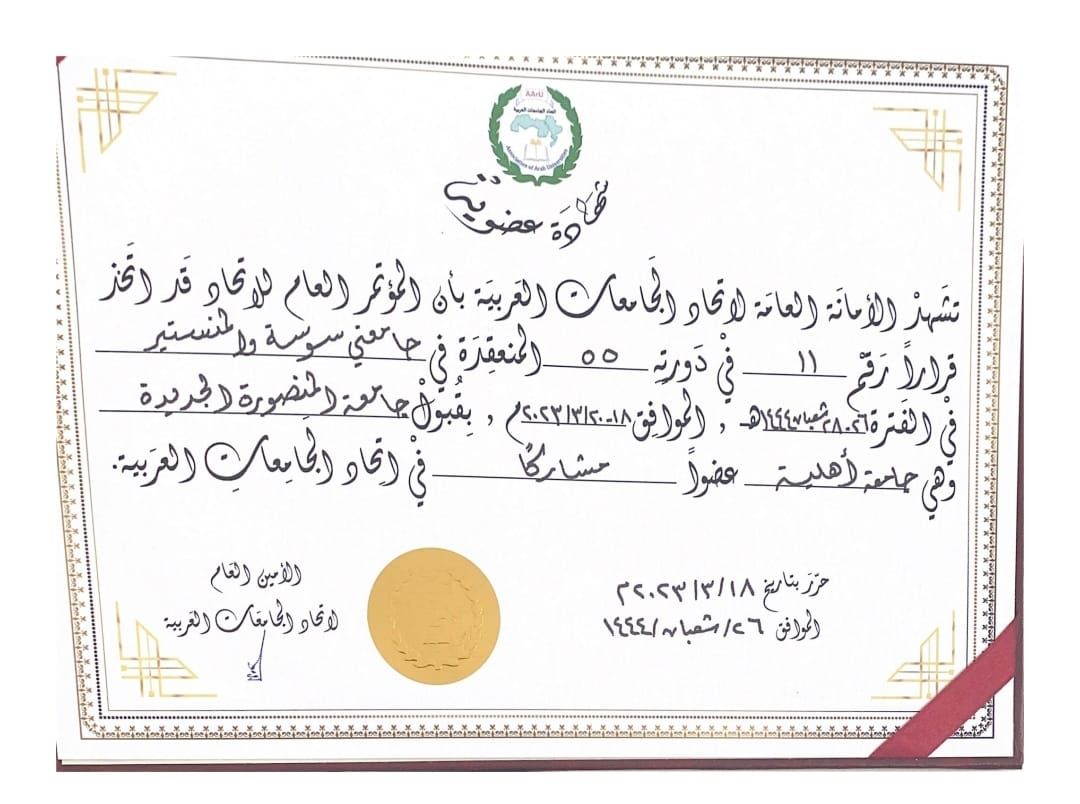 AArU
اتحاد الجامعات العربية
Association of Arab Universities
شهادة عضوية
تشهد الأمانة العامة لاتحاد الجامعات العربية بأن المؤتمر العام للاتحاد قد اتخذ
قراراً رقم ١١ في دورته ٥٥ المنعقدة في جامعتي سوسة والمنستير
في الفترة ٢٦-٢٨ شعبان ١٤٤٤هـ , الموافق ١٨-٢٠/٣/٢٠٢٣م , بقبول جامعة المنصورة الجديدة
وهي جامعة أهلية عضواً مشاركًا في اتحاد الجامعات العربية.
حرر بتاريخ ١٨/٣/٢٠٢٣م
الموافق ٢٦/شعبان/١٤٤٤
الأمين العام
لاتحاد الجامعات العربية